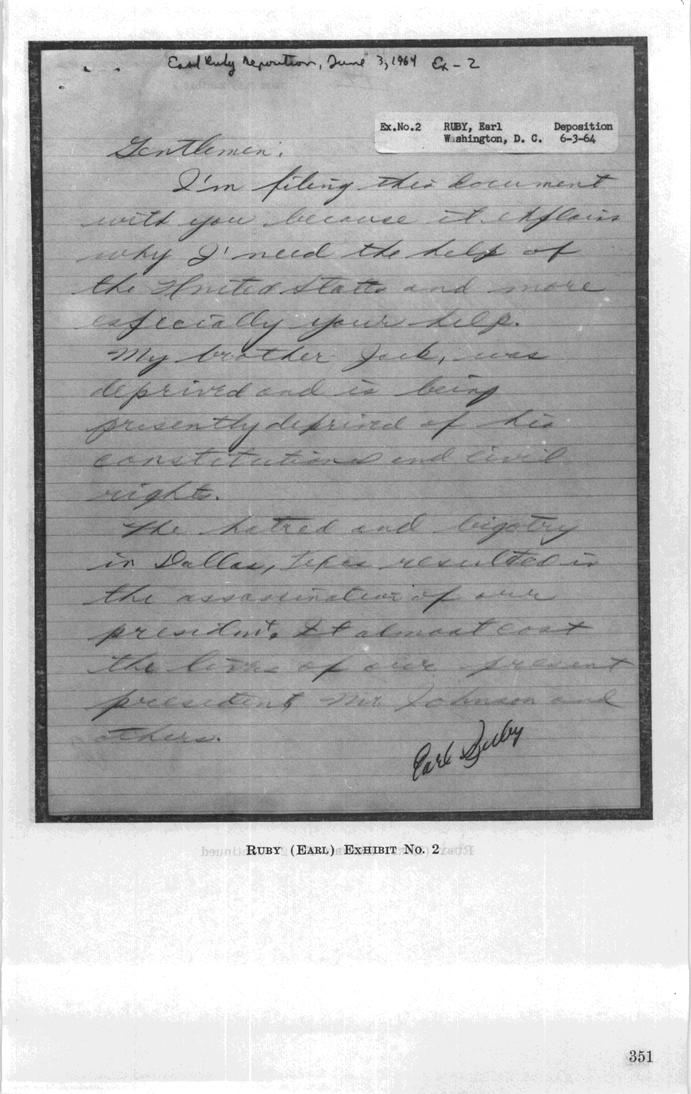 Earl Ruby Deposition, June 3, 1964 Ex-2
Ex.No.2 RUBY, Earl Deposition
Washington, D. C. 6-3-64
Gentlemen:
I'm filing this document
with you because it explains
why I need the help of
the United States and more
especially your help.
My brother Jack, was
deprived and is being
presently deprived of his
constitutional and civil
rights.
The hatred and bigotry
in Dallas, Texas resulted in
the assassination of our
president. It almost cost
the lives of our present
president, Mr. Johnson and
others.
Earl Ruby
RUBY (EARL) EXHIBIT NO. 2
351